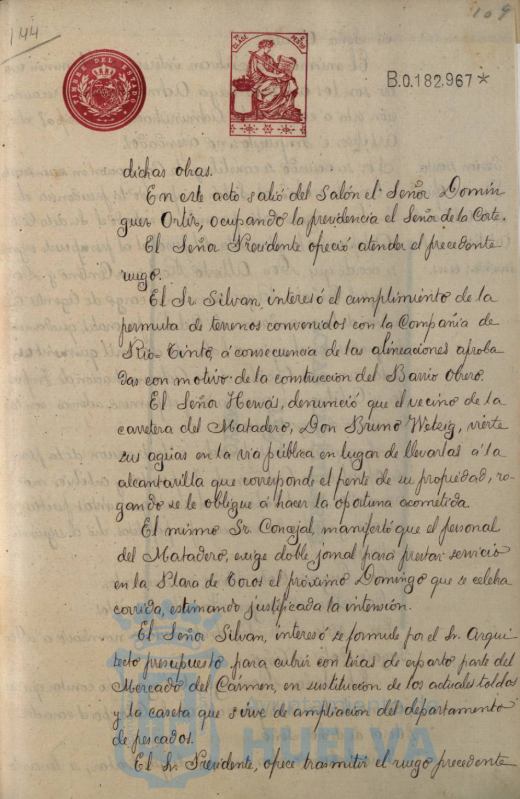 144
109
TIMBRE DEL ESTADO
CLASE
B.0.182.967*
dichas obras.
En este acto salió del Salón el Señor Domín
guez Ortiz, ocupando la presidencia el Señor de la Corte.
El Señor Presidente ofreció atender el precedente
ruego.
El Sr. Silván, interesó el cumplimiento de la
permuta de terrenos convenidos con la Compañía de
Rio-Tinto, á consecuencia de las alineaciones aproba
das con motivo de la construcción del Barrio Obrero.
El Señor Hervás, denunció que el vecino de la
carretera del Matadero, Don Bruno Wetzig, vierte
sus aguas en la vía pública en lugar de llevarlas á la
alcantarilla que corresponde el frente de su propiedad, ro-
gando se le obligue á hacer la oportuna acometida.
El mismo Sr. Concejal, manifestó que el personal
del Matadero, exige doble jornal para prestar servicio
en la Plaza de Toros el próximo Domingo que se celebra
corrida, estimando justificada la intensión.
El Señor Silván, interesó se formule por el Sr. Arqui
tecto presupuesto para cubrir con tejas de esparto parte del
Mercado del Cármen, en sustitución de los actuales toldos
y la caseta que sirve de ampliación del departamento
de pescados.
El Sr. Presidente, ofrece trasmitir el ruego precedente
Ayuntamiento de
HUELVA